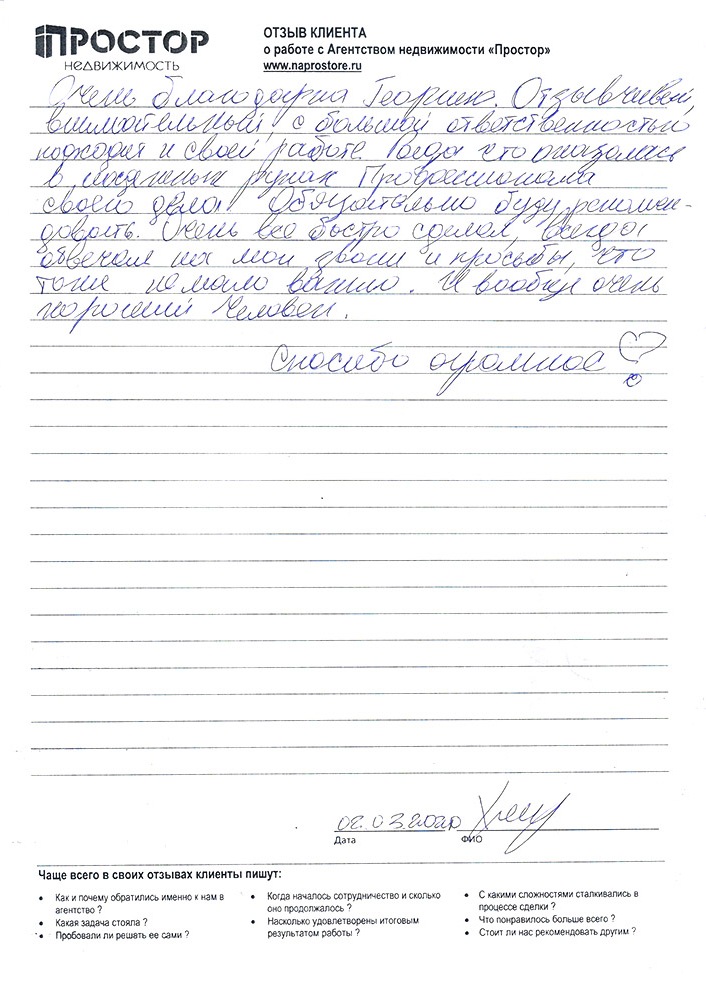 ПРОСТОР
НЕДВИЖИМОСТЬ
ОТЗЫВ КЛИЕНТА
о работе с Агентством недвижимости «Простор»
www.naprostore.ru
Очень благодарна Георгию. Отзывчивый,
внимательный, с большой ответственностью
подходит к своей работе. Рада что оказалась
в надежных руках Профессионала
своего дела! Обязательно буду рекомен-
довать. Очень все быстро сделал, всегда
отвечал на мои звонки и просьбы, что
тоже не мало важно. И вообще очень
хороший человек.
Спасибо огромное
02.03.2020
Дата
ФИО
Чаще всего в своих отзывах клиенты пишут:
• Как и почему обратились именно к нам в
агентство ?
• Какая задача стояла ?
• Пробовали ли решать ее сами ?
• Когда началось сотрудничество и сколько
оно продолжалось ?
• Насколько удовлетворены итоговым
результатом работы ?
• С какими сложностями сталкивались в
процессе сделки ?
• Что понравилось больше всего ?
• Стоит ли нас рекомендовать другим ?